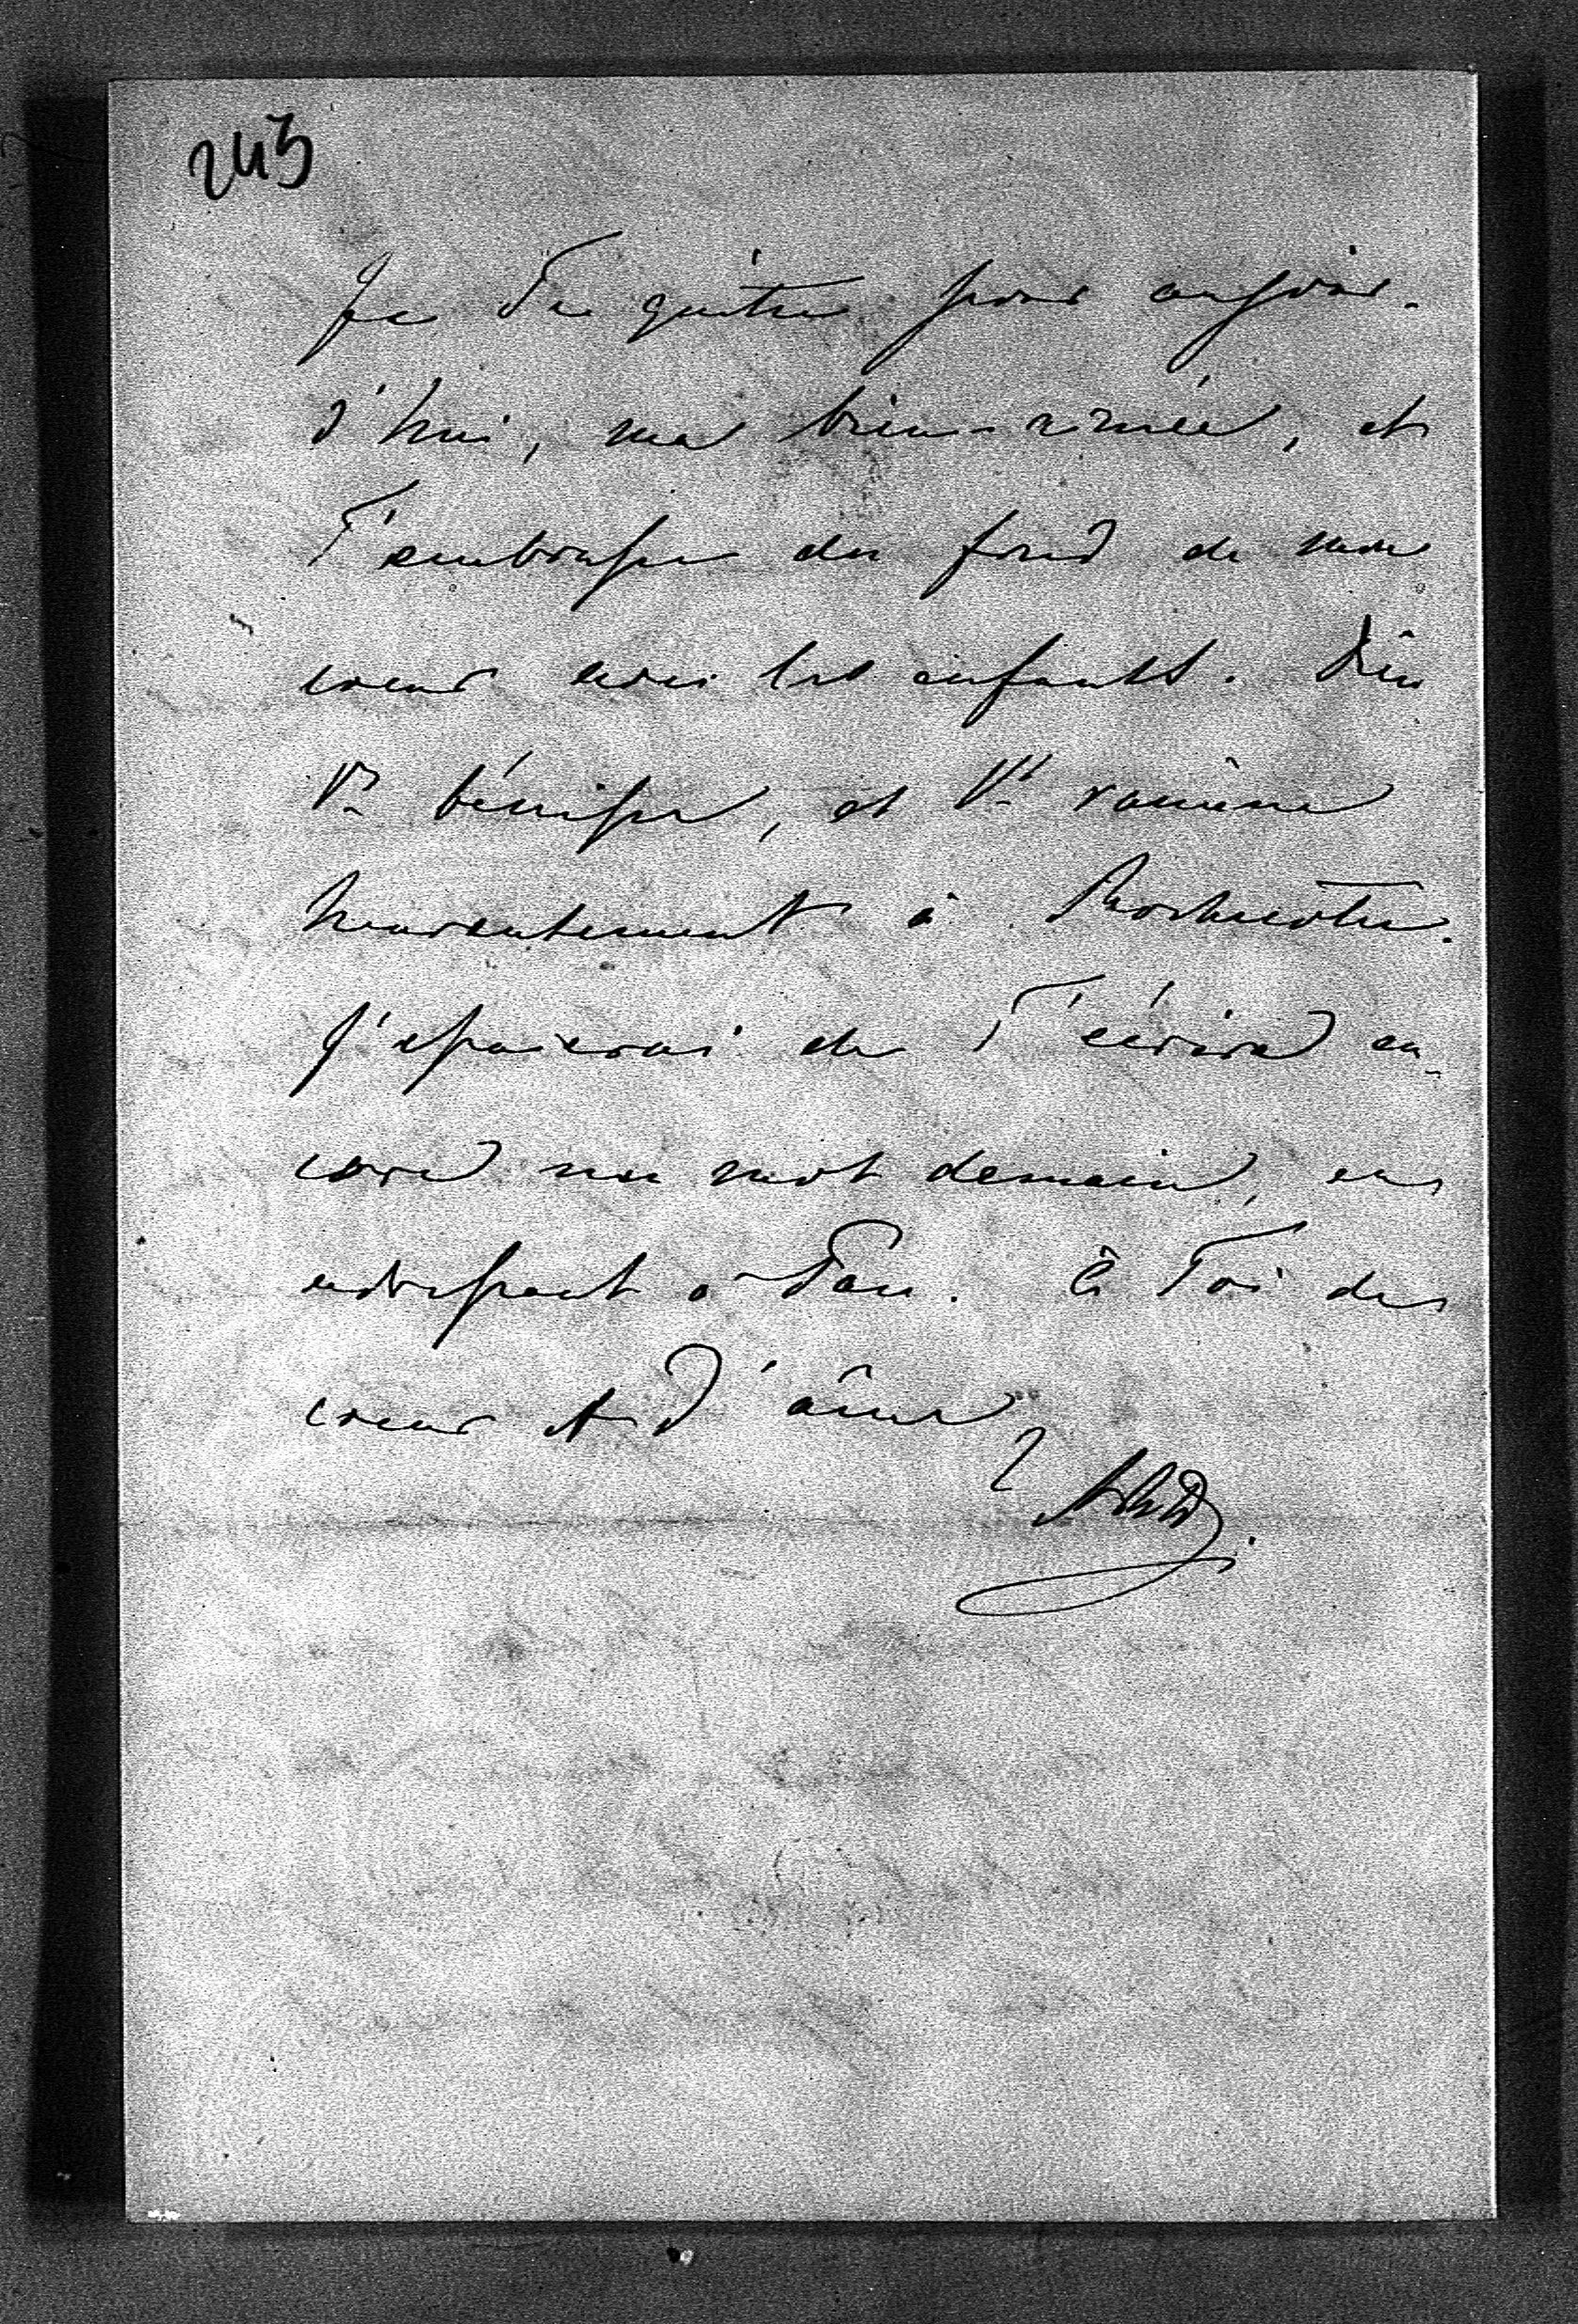 243
Je Te quitte pour aujour-
d'hui, ma bien-aimée, et
T'embrasse du fond de mon
coeur avec les enfants. Dieu
Vs bénisse, et Vs ramène
heureusement à Rochecotte.
J'essaierai de T'écrire en-
core un mot demain, en
adressant à Pau. à Toi de
coeur et d'âme